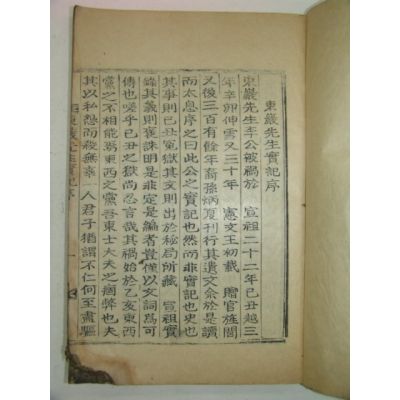 東巖先生實記序
東巖先生李公被禍於 宣祖二十二年己丑越三
年辛卯伸雪又三十年 憲文王初載 贈官旌閭
又後三百有餘年裔孫炳夏刊行其遺文余於是讀
而太息序之曰此公之實記也史也
其事則己丑寃獄其文則出於秘局所藏 宣祖實
錄其義則褒誅明是非定是編者豈僅以文詞爲可
傳也嗟乎己丑之獄尚忍言哉其禍始於乙亥東西
黨之不相能焉東西之黨吾東士大夫之痼弊也夫
其以私怨而殺無辜一人君子猶謂不仁何至盡驅
東巖先生實記 序 一